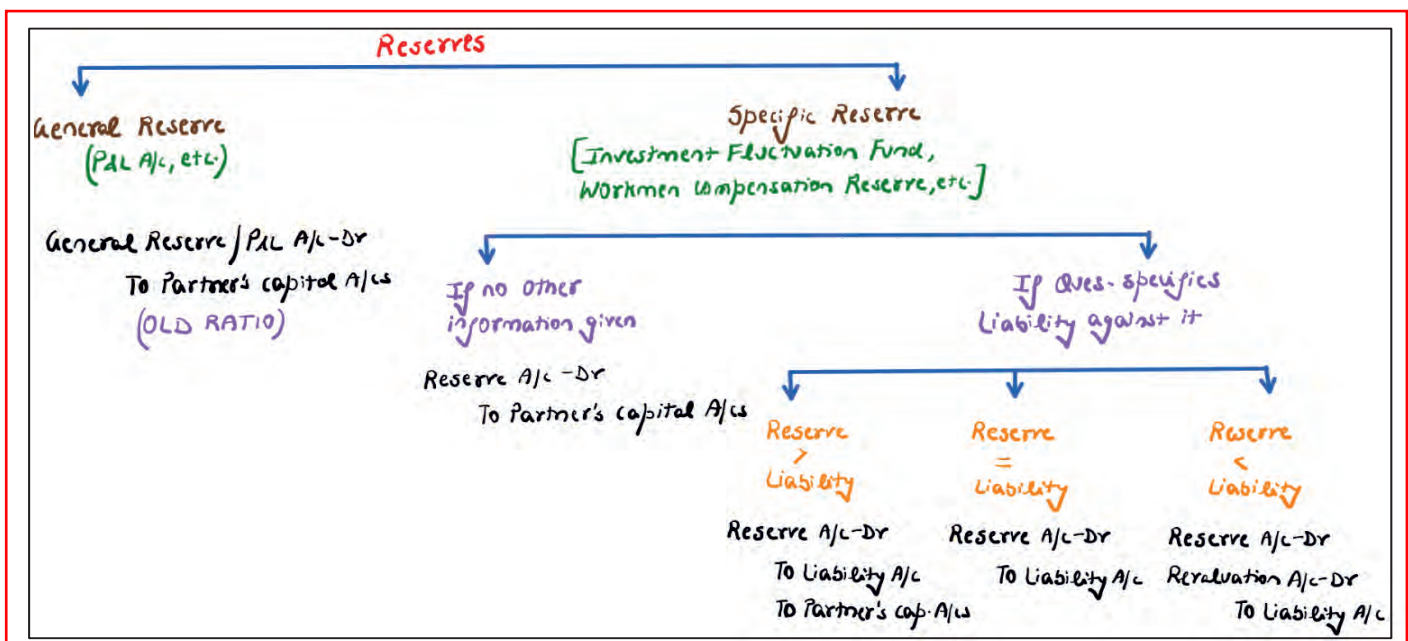 Reserves
General Reserve
(P&L A/c, etc.)
General Reserve/P&L A/c-Dr
To Partner's capital A/cs
(OLD RATIO)
Specific Reserve
[Investment Fluctuation Fund,
Workmen Compensation Reserve, etc.]
If no other
information given
Reserve A/c-Dr
To Partner's capital A/cs
If Ques. specifics
Liability against it
Reserve
>
Liability
Reserve A/c-Dr
To Liability A/c
To Partner's cap. A/cs
Reserve
=
Liability
Reserve A/c-Dr
To Liability A/c
Reserve
<
Liability
Reserve A/c-Dr
Revaluation A/c-Dr
To Liability A/c